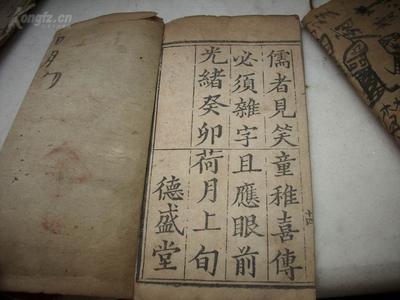 儒者見笑童稚喜傳
必須雜字且應眼前
光緒癸卯荷月上旬
德盛堂
十四
Kongfz.cn